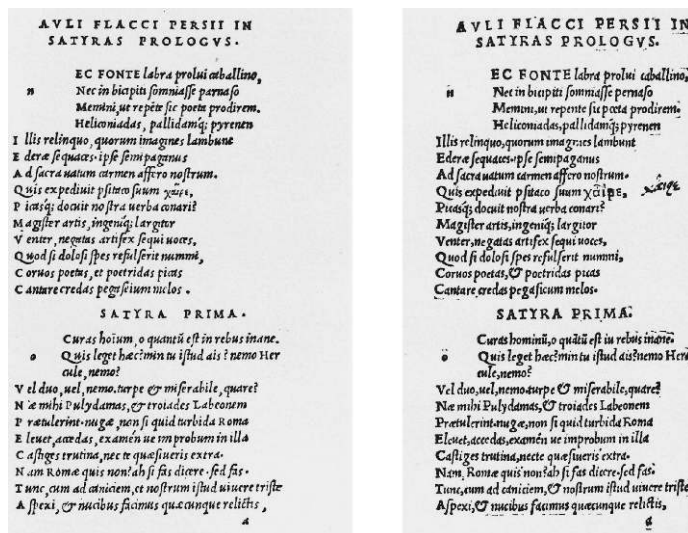 AVLI FLACCI PERSII IN
SATYRAS PROLOGVS.
EC FONTE labra prolui caballino,
n Nec in bicipiti somniasse parnaso
Memini, ut repēte sic poeta prodirem.
Heliconiadas, pallidamq; pyrenen
I llis relinquo, quorum imagines lambunt
E deræ sequaces. ipse semipaganus
A d sacra uatum carmen affero nostrum.
Q uis expediuit psitaco suum χαῖρε,
P icasq; docuit nostra uerba conari?
M agister artis, ingeniq; largitor
V enter, negatas artifex sequi uoces,
Q uod si dolosi spes refulserit nummi,
C oruos poetas, et poetridas picas
C antare credas pegaseium melos.
SATYRA PRIMA.
Curas hoīum, o quantū est in rebus inane.
o Quis leget hæc? min tu istud ais? nemo Her
cule, nemo?
V el duo, uel, nemo. turpe & miserabile, quare?
N æ mihi Pulydamas, & troiades Labeonem
P rætulerint. nugæ, non si quid turbida Roma
E leuet, accedas, examén ue improbum in illa
C astiges trutina, nec te quæsiueris extra.
N am Romæ quis non? ah si fas dicere. sed fas.
T unc, cum ad caniciem, et nostrum istud uiuere triste
A spexi, & nucibus facimus quæcunque relictis,
a
AVLI FLACCI PERSII IN
SATYRAS PROLOGVS.
EC FONTE labra prolui caballino,
n Nec in bicipiti somniasse pernaso
Memini, ut repente sic poeta prodirem.
Heliconiadas, pallidamq; pyrenen
Illis relinquo, quorum imagines lambunt
Ederæ sequaces. ipse semipaganus
Ad sacra uatum carmen affero nostrum.
Quis expediuit psitaco suum χαῖρε, χαῖρε
Picasq; docuit nostra uerba conari?
Magister artis, ingeniq; largitor
Venter, negatas artifex sequi uoces,
Quod si dolosi spes refulserit nummi,
Coruos poetas, & poetridas picas
Cantare credas pegasicum melos.
SATYRA PRIMA.
Curas hominū, o quātū est in rebus inane.
o Quis leget hæc? min tu istud ais? nemo Her
cule, nemo?
Vel duo, uel, nemo. turpe & miserabile, quare?
Næ mihi Pulydamas, & troiades Labeonem
Prætulerint. nugæ, non si quid turbida Roma
Eleuet, accedas, examén ue improbum in illa
Castiges trutina, nec te quæsiueris extra.
Nam, Romæ quis non? ah si fas dicere. sed fas.
Tunc, cum ad caniciem, & nostrum istud uiuere triste
Aspexi, & nucibus facimus quæcunque relictis,
a